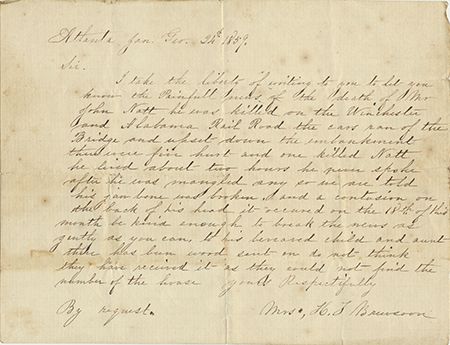 Atlanta Jan. Geo. 24th 1859.
Sir.
I take the liberty of writing to you to let you
know the Painfull news of the death of Mr
John Natt he was killed on the Winchester
and Alabama Rail Road the cars ran of the
Bridge and upset down the embankment
there were five hurt and one killed Natt
he lived about two hours he never spoke
after he was mangled any so we are told
his jaw bone was broken, and a contusion on
the back of his head it occured on the 18th of this
month be kind enough to break the news as
gently as you can, to his bereaved child and aunt
there has been word sent on do not think
they have received it as they could not find the
number of the house yours Respectifully
By request. Mrs., H. S